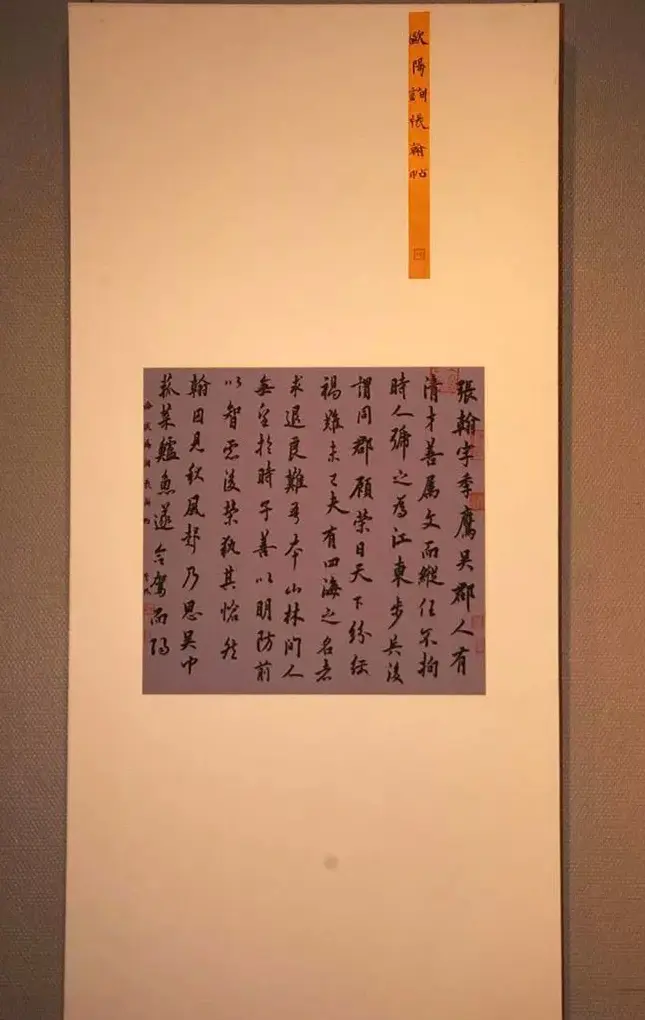 歐陽詢張翰帖
張翰字季鷹吳郡人有
清才善属文而縱任不拘
時人號之為江東步兵後
謂同郡顧榮曰天下紛紜
禍難未已夫有四海之名者
求退良難吾本山林間人
無望於時子善以明防前
以智慮後榮執其愴然
翰因見秋風起乃思吳中
菰菜鱸魚遂命駕而歸
臨歐陽詢張翰帖